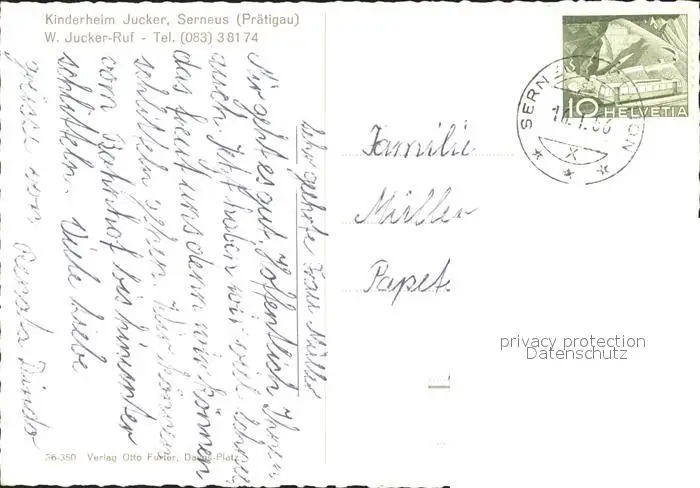 Kinderheim Jucker, Serneus (Prätigau)
W. Jucker-Ruf - Tel. (083) 3 81 74
Sehr geehrte Frau Müller
Mir geht es gut. Hoffentlich Ihnen
auch. Jetzt haben wir viel Schnee
das freut uns denn wir können
schlitteln gehen. Wir können
vom Bahnhof bis hinunter
schlitteln. Viele liebe
grüsse von Renata
Familie
Müller
Papet
HELVETIA
10
SERN
privacy protection
Datenschutz
36-380 Verlag Otto Furter, Davos-Platz